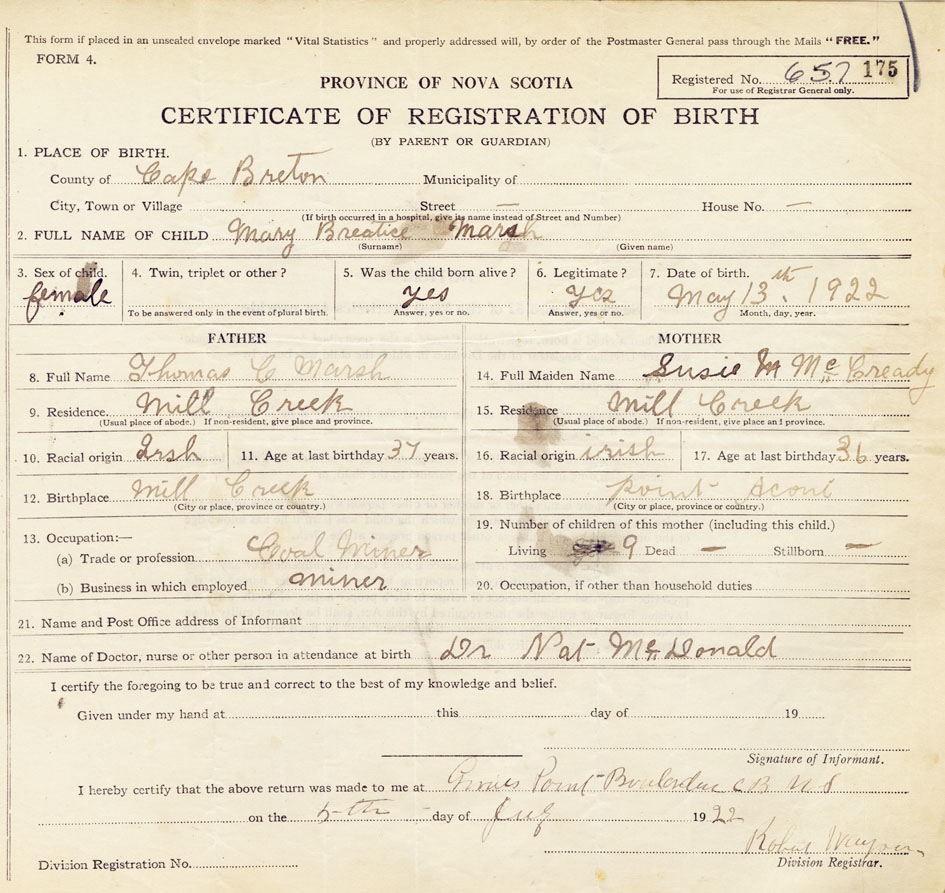 This form if placed in an unsealed envelope marked "Vital Statistics" and properly addressed will, by order of the Postmaster General pass through the Mails "FREE."
FORM 4.
Registered No. 657 175
For use of Registrar General only.
PROVINCE OF NOVA SCOTIA
CERTIFICATE OF REGISTRATION OF BIRTH
(BY PARENT OR GUARDIAN)
1. PLACE OF BIRTH.
County of Cape Breton Municipality of
City, Town or Village Street — House No. —
(If birth occurred in a hospital, give its name instead of Street and Number)
2. FULL NAME OF CHILD Mary Breatice Marsh
(Surname) (Given name)
3. Sex of child. 4. Twin, triplet or other? 5. Was the child born alive? 6. Legitimate? 7. Date of birth.
female yes yes May 13th. 1922
To be answered only in the event of plural birth. Answer, yes or no. Answer, yes or no. Month, day, year.
FATHER MOTHER
8. Full Name Thomas C Marsh 14. Full Maiden Name Susie M McCready
9. Residence. Mill Creek 15. Residence Mill Creek
(Usual place of abode.) If non-resident, give place and province. (Usual place of abode.) If non-resident, give place and province.
10. Racial origin Irsh 11. Age at last birthday 37 years. 16. Racial origin irish 17. Age at last birthday 36 years.
12. Birthplace Mill Creek 18. Birthplace Point Aconi
(City or place, province or country.) (City or place, province or country.)
13. Occupation:— 19. Number of children of this mother (including this child.)
(a) Trade or profession Coal Miner Living 9 Dead — Stillborn —
(b) Business in which employed miner 20. Occupation, if other than household duties
21. Name and Post Office address of Informant
22. Name of Doctor, nurse or other person in attendance at birth Dr Nat McDonald
I certify the foregoing to be true and correct to the best of my knowledge and belief.
Given under my hand at this day of 19
Signature of Informant.
I hereby certify that the above return was made to me at Point Boularderie C B N S
on the day of 1922
Robert
Division Registration No. Division Registrar.